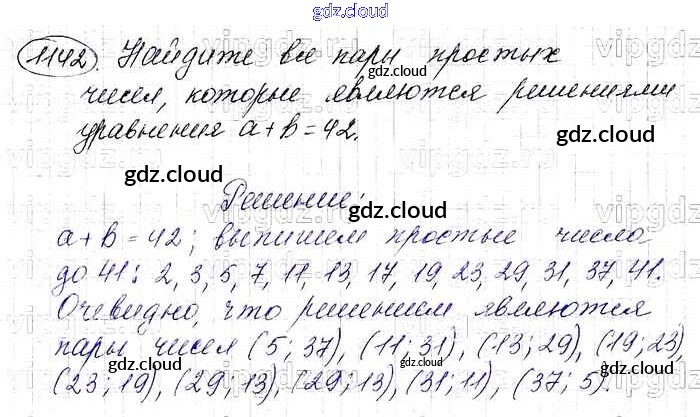 gdz.cloud
1142. Найдите все пары простых
gdz.cloud
чисел, которые являются решениями
уравнения a+b=42.
gdz.cloud
gdz.cloud
Решение:
gdz.cloud
a+b=42; выпишем простые числа
до 41: 2, 3, 5, 7, 11, 13, 17, 19, 23, 29, 31, 37, 41.
gdz.cloud
gdz.cloud
Очевидно, что решением являются
пары чисел (5; 37), (11; 31), (13; 29), (19; 23),
gdz.cloud
gdz.cloud
gdz.cloud
(23; 19), (29; 13), (29; 13), (31; 11), (37; 5).
gdz.cloud